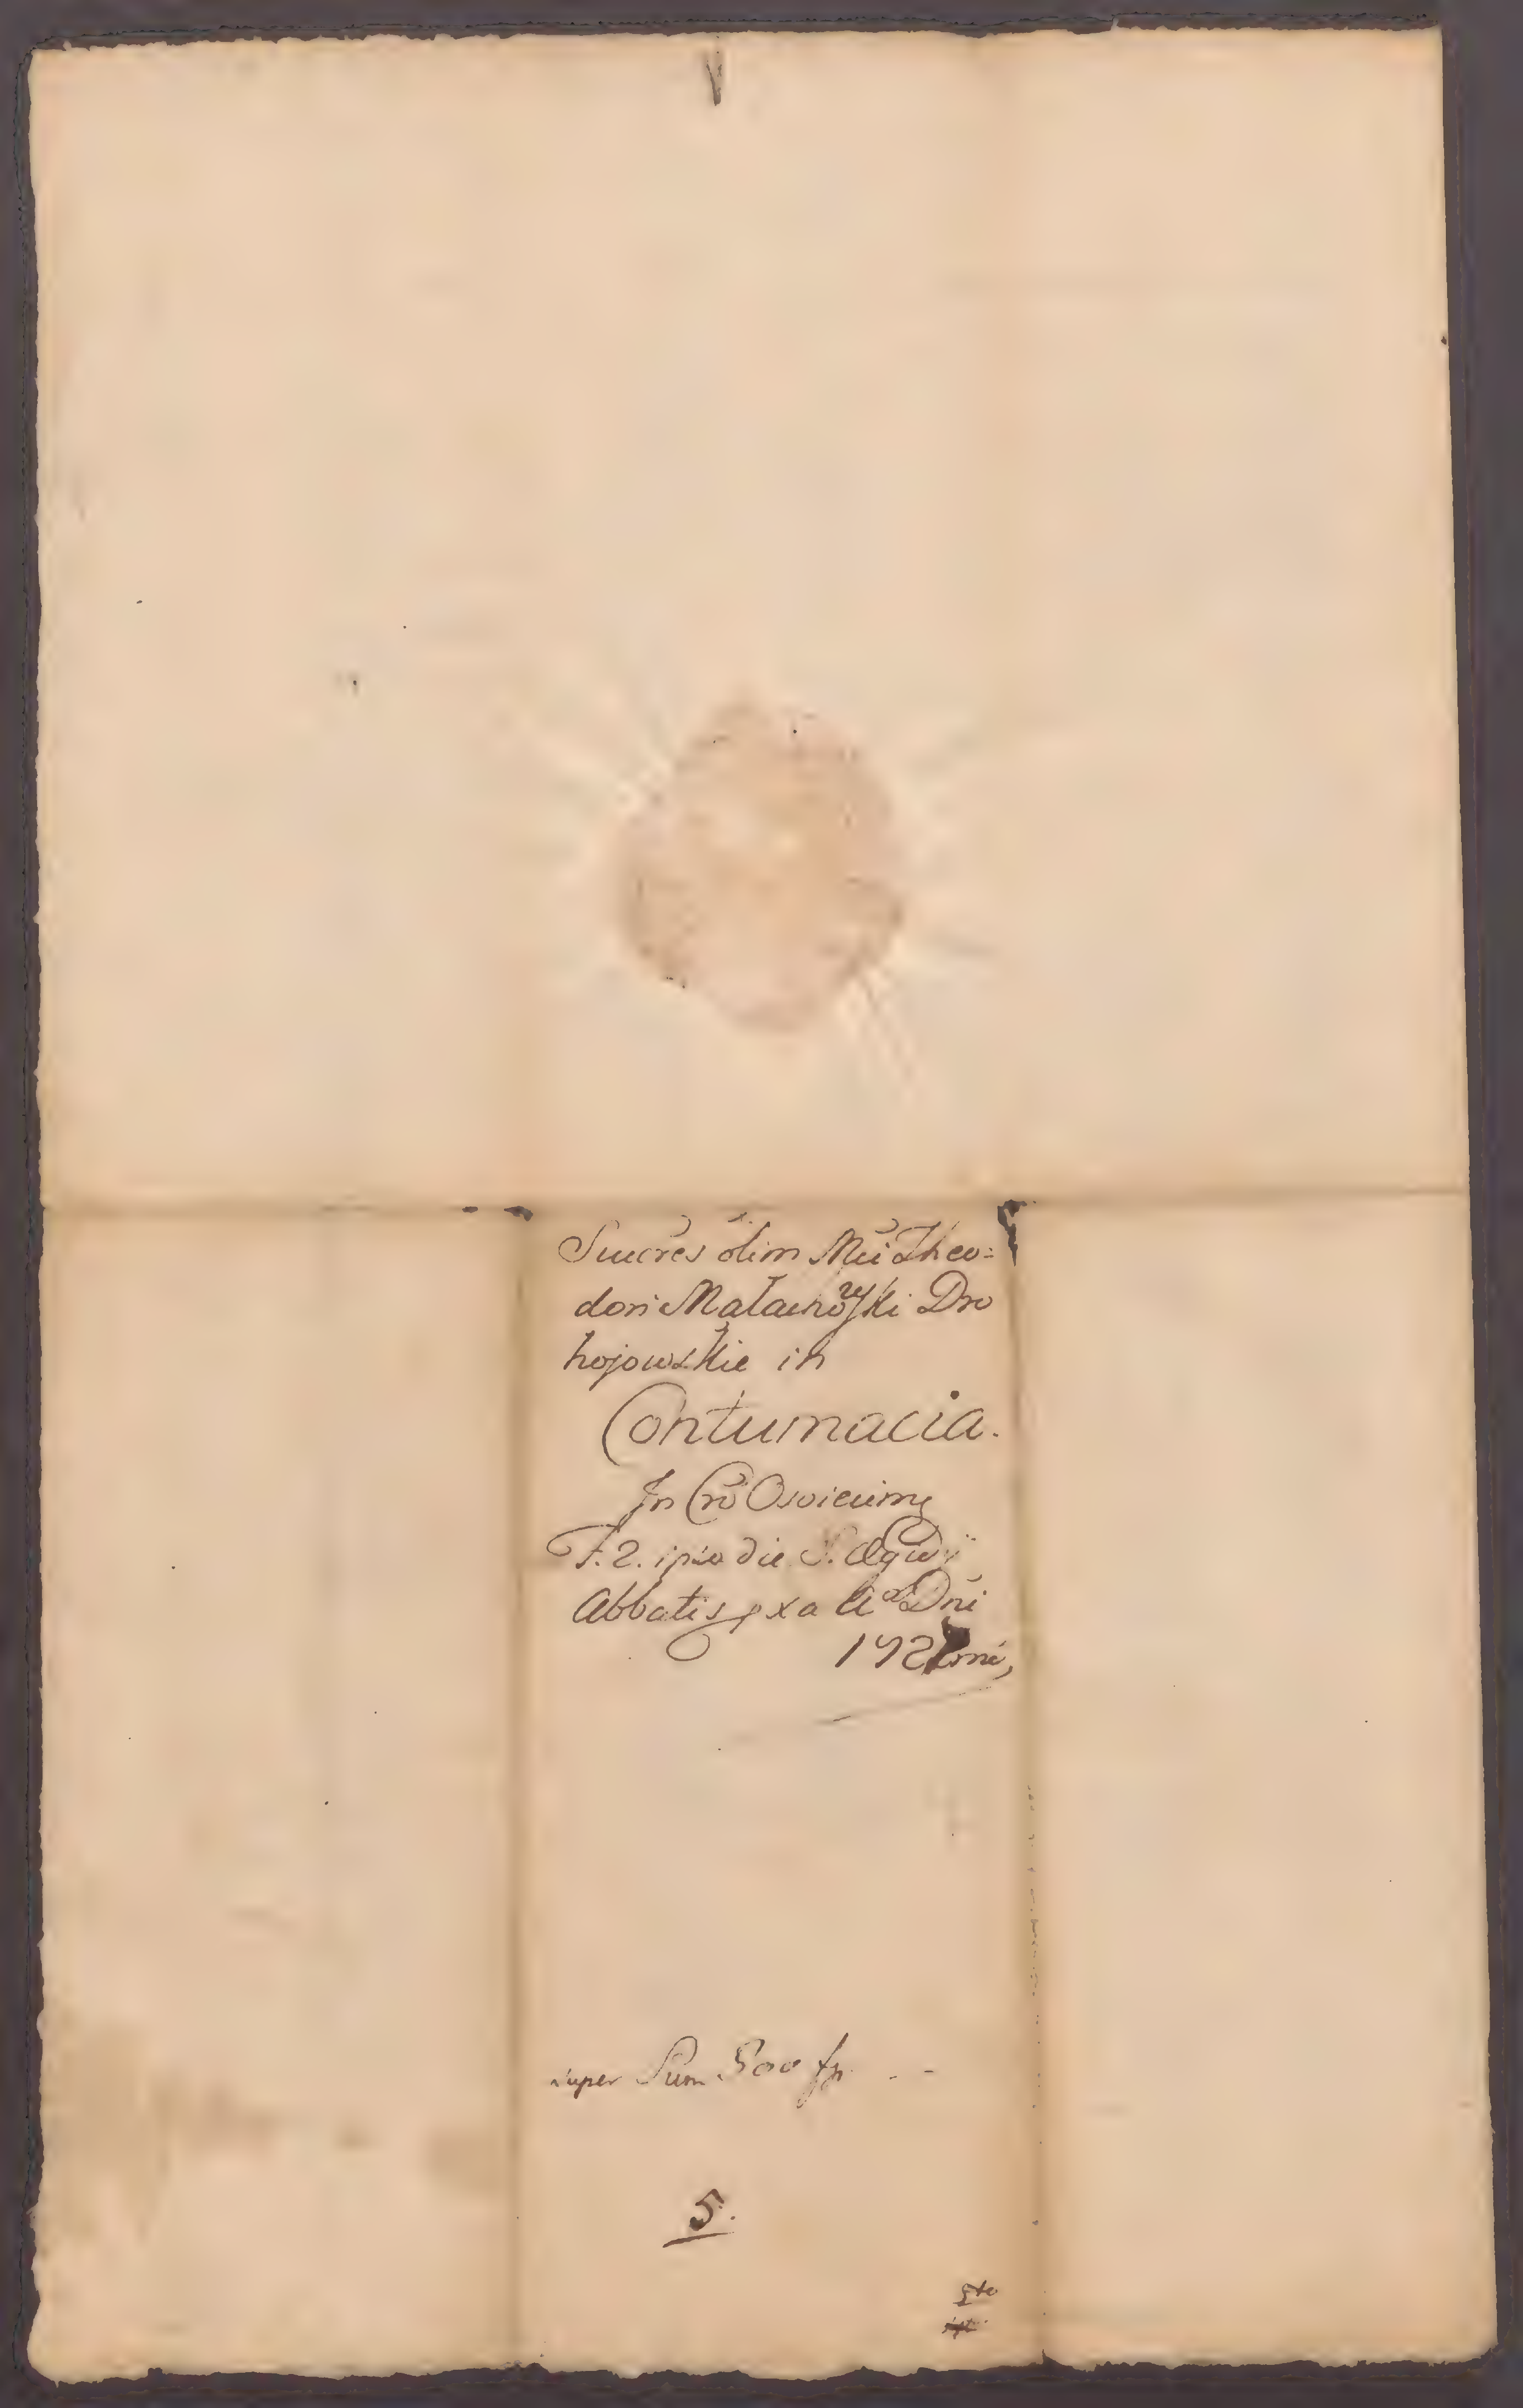 Succres olim Mci Theo=
dori Małachowski Dro
hojowskie in
Contumacia.
In Cro Oswiecims
F. 2. ipso die S. Egidij
Abbatis pxa Ao Dni
172
super Sum 500 fp
5.
5to